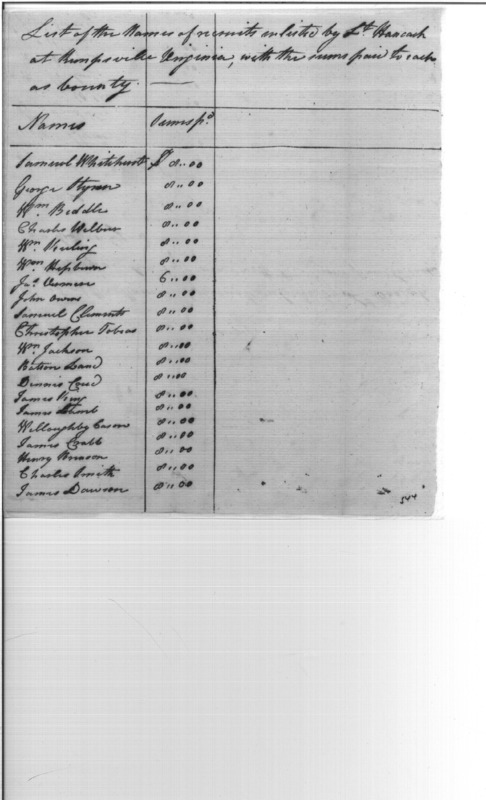 List of the Names of recruits inlisted by Lt. Hancock
at Kempsville Virginia, with the sums paid to each
as bounty —
Names Sums pd.
Samuel Whitehurst $ 8..00
George 8..00
Wm. Biddle 8..00
Charles Wilbur 8..00
Wm. 8..00
Wm. Hepburn 8..00
Jas. 6..00
John Owens 8..00
Samuel Clements 8..00
Christopher Tobias 8..00
Wm. Jackson 8..00
Batson Land 8..00
Dennis 8..00
James 8..00
James 8..00
Willoughby Cason 8..00
James Crabb 8..00
Henry 8..00
Charles Smith 8..00
James Dawson 8..00
544